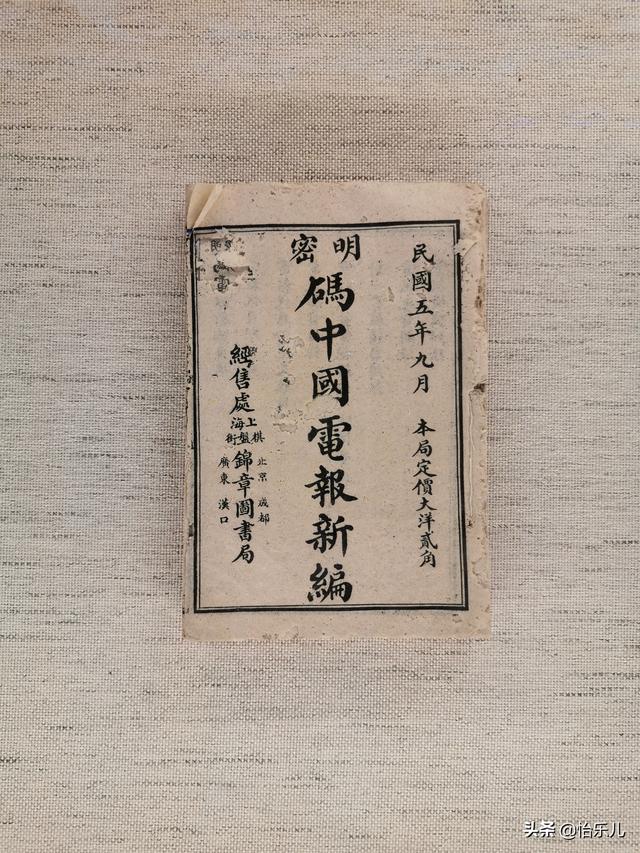 民國五年九月 本局定價大洋貳角
明密碼中國電報新編
經售處 上海棋盤街 北京 成都 錦章圖書局 廣東 漢口
头条 @怡乐儿